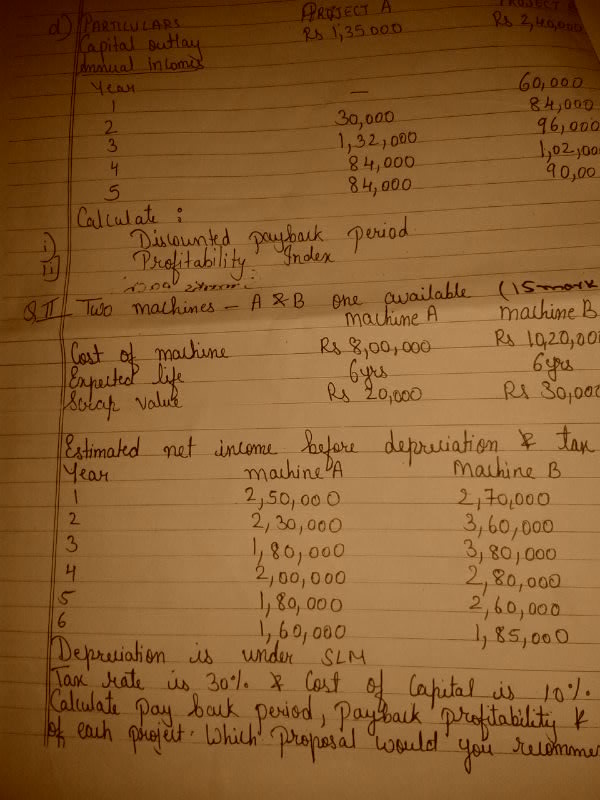 d) PARTICULARS PROJECT A PROJECT
Capital outlay Rs 1,35000 Rs 2,40,000
Annual Incomes
Year
1 — 60,000
2 30,000 84,000
3 1,32,000 96,000
4 84,000 1,02,00
5 84,000 90,00
Calculate :
i) Discounted payback period
ii) Profitability Index
Q.II Two machines - A & B are available (15 mark
machine A machine B
Cost of machine Rs 8,00,000 Rs 10,20,000
Expected life 6yrs 6yrs
Scrap value Rs 20,000 Rs 30,000
Estimated net income before depreciation & tax
Year machine A Machine B
1 2,50,000 2,70,000
2 2,30,000 3,60,000
3 1,80,000 3,80,000
4 2,00,000 2,80,000
5 1,80,000 2,60,000
6 1,60,000 1,85,000
Depreciation is under SLM
Tax rate is 30% & Cost of Capital is 10%.
Calculate pay back period, Payback profitability &
of each project. Which proposal would you recomme